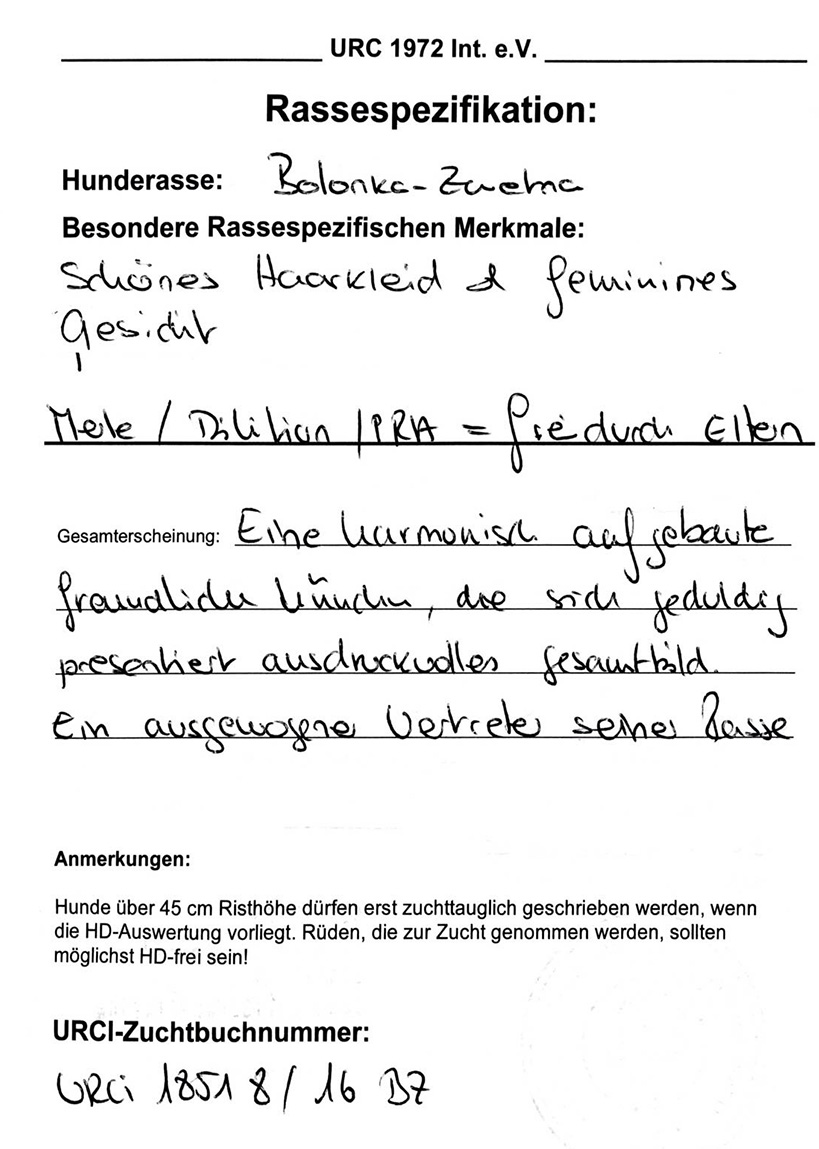 URC 1972 Int. e.V.
Rassespezifikation:
Hunderasse: Bolonka-Zwetna
Besondere Rassespezifischen Merkmale:
Schönes Haarkleid & feminines
Gesicht
Merle / Dilition / PRA = frei durch Eltern
Gesamterscheinung: Eine harmonisch aufgebaute
freundliche Hündin, die sich geduldig
presentiert ausdruckvolles Gesamtbild.
Ein ausgewogener Vertreter seiner Rasse
Anmerkungen:
Hunde über 45 cm Risthöhe dürfen erst zuchttauglich geschrieben werden, wenn
die HD-Auswertung vorliegt. Rüden, die zur Zucht genommen werden, sollten
möglichst HD-frei sein!
URCI-Zuchtbuchnummer:
URCi 18518/16 BZ